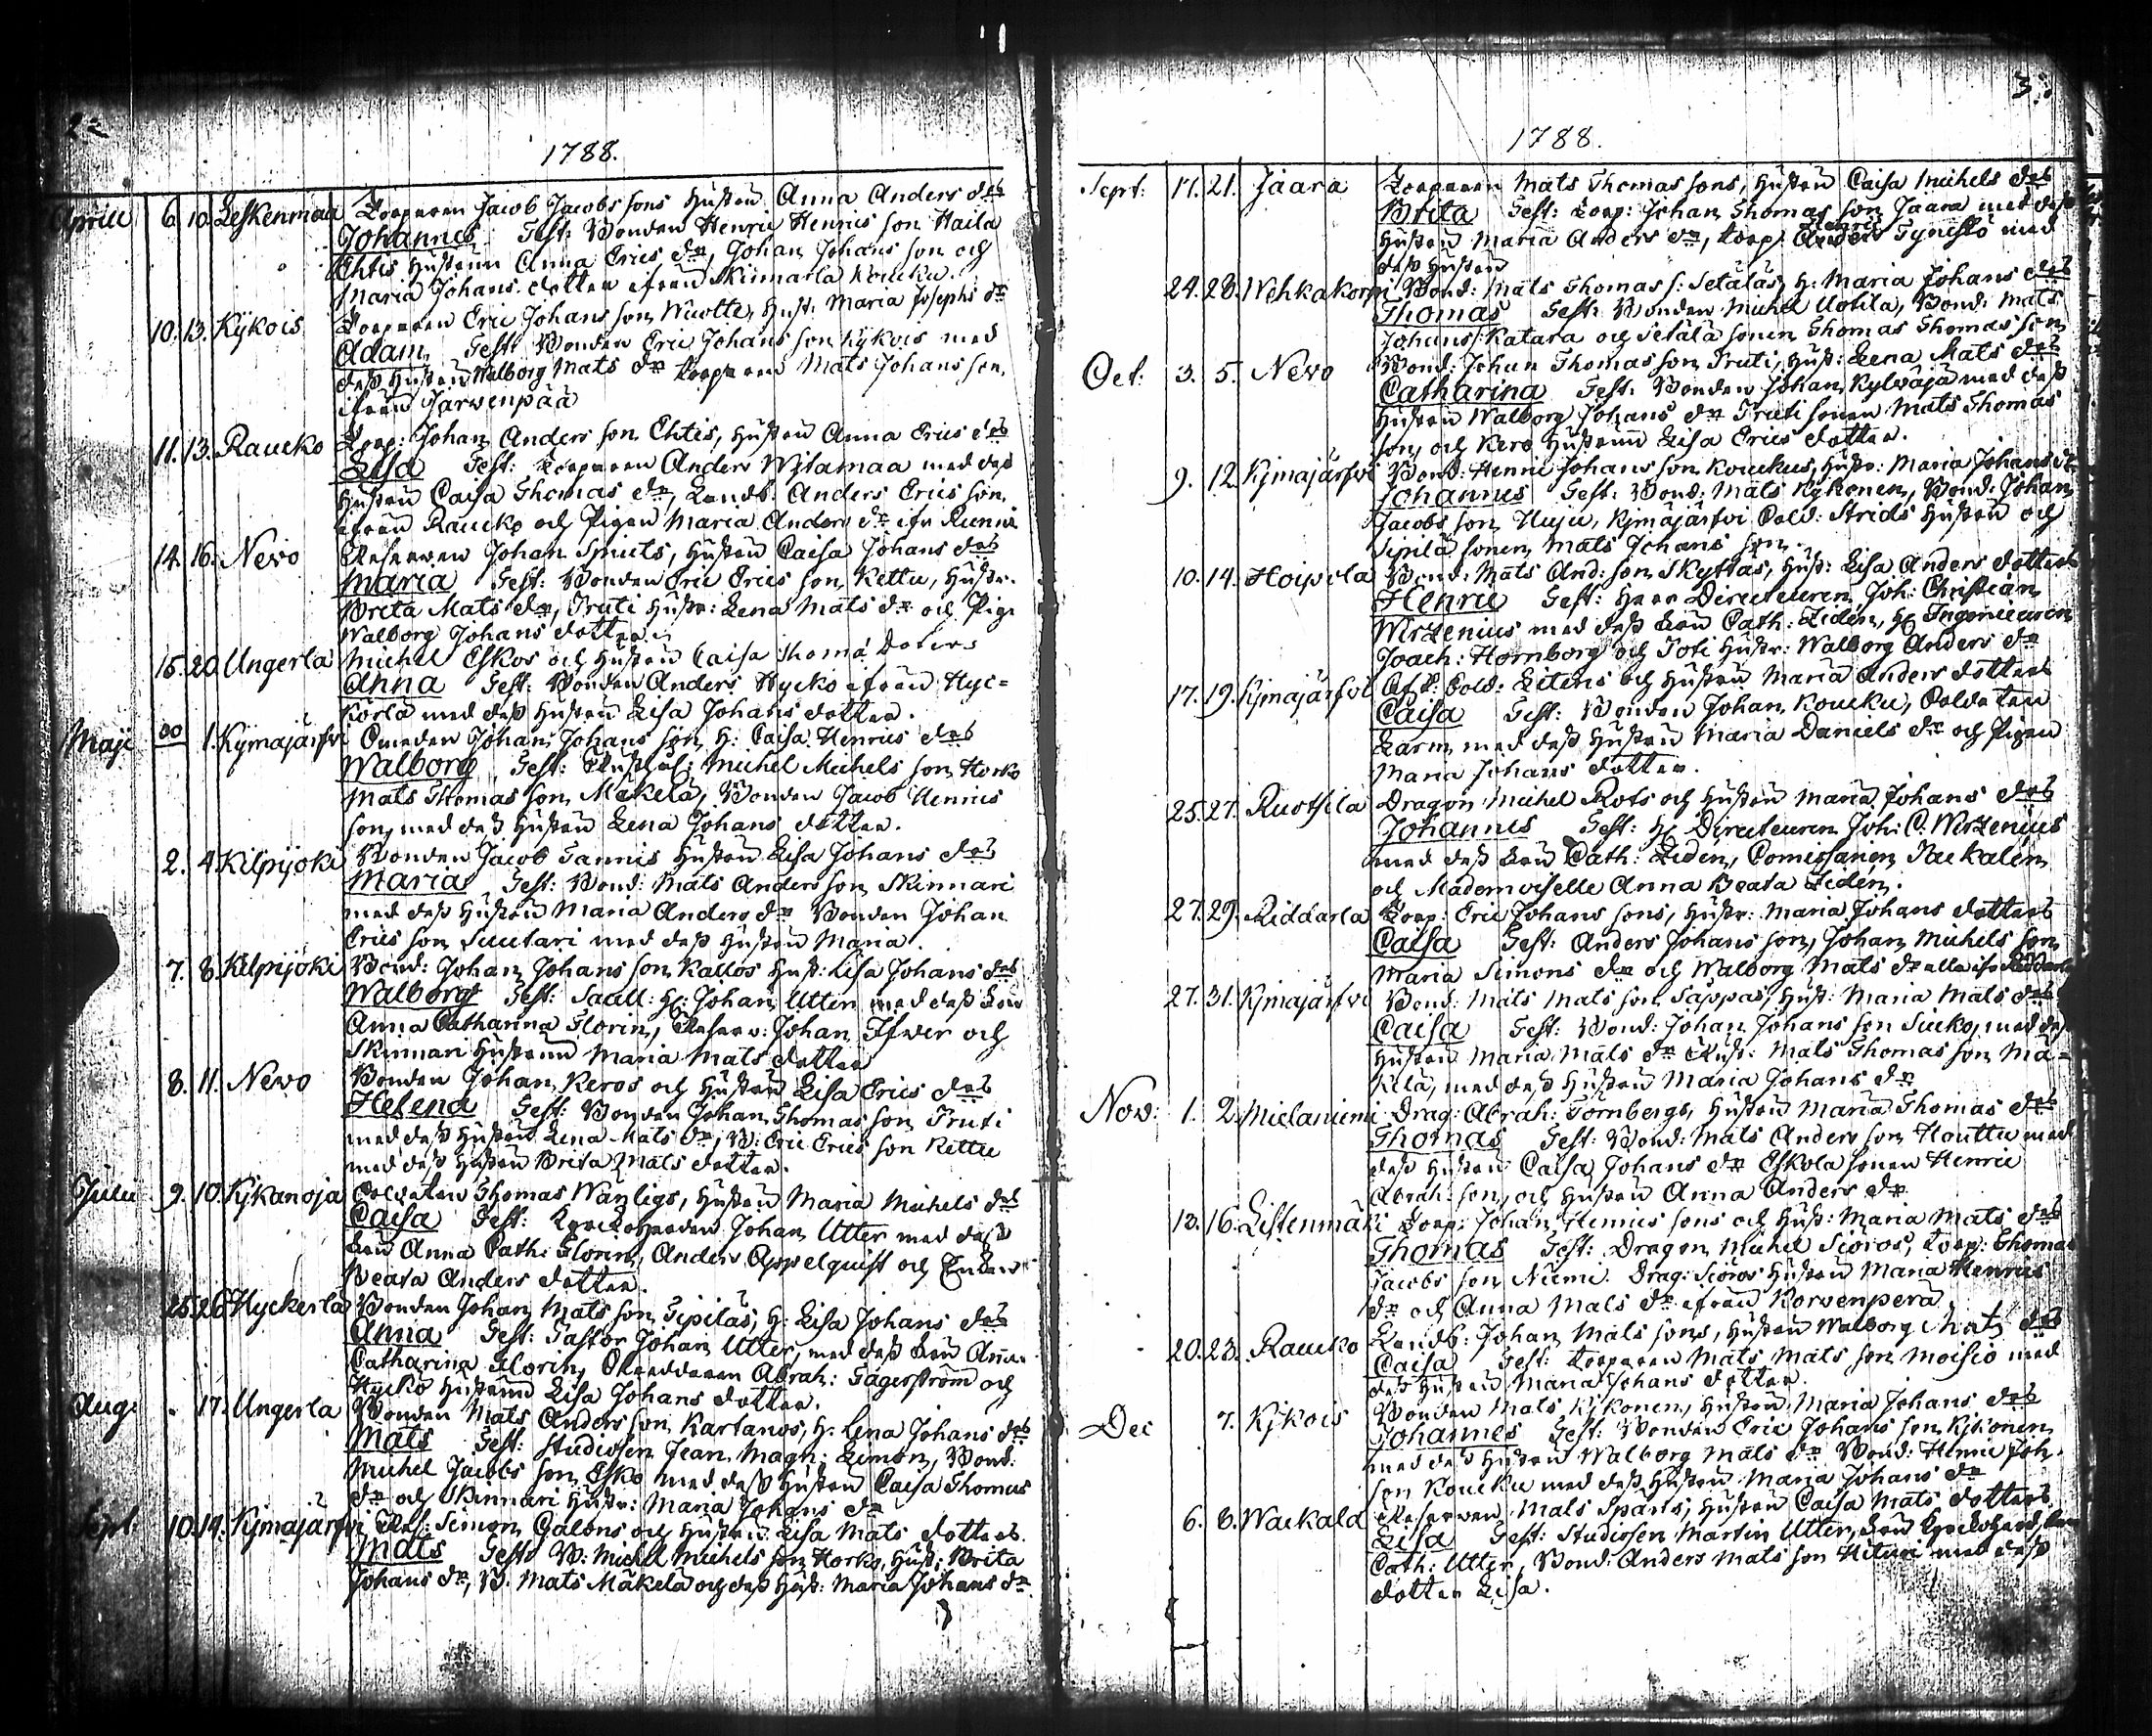 2
1788.
Aprill 6. 10. Leskenmaa Torparen Jacob Jacobs sons Hustru Anna Anders drs
Johannes Test: Bonden Henric Henrics son Haila
Ehtis Hustrun Anna Erics dr, Johan Johans son och
Maria Johans dotter ifrån Skinnarla Koucku.
10. 13. Kykois Torparen Eric Johans son Wuolte, Hust: Maria Josephs dr
Adam Test: Bonden Eric Johans son Kykois med
dess Hustru Walborg Mats dr Torparen Mats Johans son
ifrån Jarwenpää
11. 13. Raucko Torp: Johan Anders son Ehtis, Hustru Anna Erics drs
Lisa Test: Torparen Anders Wjtamaa med dess
Hustru Caisa Thomas dr, Landb: Anders Erics son
ifrån Raucko och Pigan Maria Anders dr ifr
14. 16. Nevo Reserven Johan Spuets, Hustru Caisa Johans drs
Maria Test: Bonden Eric Erics son Kettu, Hustr.
Brita Mats dr, Pruti Hustr: Lena Mats dr och Pig:
Walborg Johans dotter
15. 20 Ungerla Michel Eskos och Hustru Caisa Thomæ Doters
Anna Test: Bonden Anders Hycko ifrån Hyc=
körlä med dess Hustru Lisa Johans dotter.
Maji 00 1. Kymajärfvi Johan Johans son, H: Caisa Henrics drs
Walborg Test: Michel Michels son Horko
Mats Thomas son Mäkelä, Bonden Jacob Henrics
son, med dess Hustru Lena Johans dotter.
2. 4 Kilpijoki Bonden Jacob Tannis Hustru Lisa Johans drs
Maria Test: Bond: Mats Anders son Skinnari
med dess Hustru Maria Anders dr Bonden Johan
Erics son Suutari med dess Hustru Maria.
7. 8. Kilpijoki Bond: Johan Johans son Kallos Hust: Lisa Johans drs
Walborg Test: Sacell: H: Johan Utter med dess Fru
Anna Catharina Florin, Reserv: Johan Ifver och
Skinnari Hustrun Maria Mats dotter
8. 11. Nevo Bonden Johan Keros och Hustru Lisa Erics drs
Helena Test: Bonden Johan Thomas son Pruti
med dess Hustru Lena Mats dr, B: Eric Erics son Kettu
med dess Hustru Brita Mats dotter.
Julii 9. 10. Kykanoja Soldaten Thomas Wänligs, Hustru Maria Michels drs
Caisa Test: Kyrckoherden Johan Utter med dess
Fru Anna Cath: Florin, Anders Appelquist och Enkan
Beata Anders dotter.
25. 26 Hyckerlä Bonden Johan Mats son Sipiläs, H: Lisa Johans drs
Anna Test: Pastor Johan Utter, med dess Fru Anna
Catharina Florin, Abrah: Fagerström och
Hycko Hustrun Lisa Johans dotter.
Aug: 17. Ungerla Bonden Mats Anders son Kartanos, H: Lena Johans drs
Mats Test: Studiosen Jean Magn: Limon, Bond:
Michel Jacobs son Esko med dess Hustru Caisa Thomas
dr och Skinnari Hustr: Maria Johans dr
Sept: 10. 14. Kymajärfvi Res: Simon Galons och Hustru Lisa Mats dotters
Mats Test: B: Michel Michels son Horko, Hust: Brita
Johans dr, B. Mats Mäkelä och dess Hust: Maria Johans dr
3.
1788.
Sept: 17. 21. Jaara Torparen Mats Thomas sons, Hustru Caisa Michels drs
Brita Test: Torp: Johan Thomas son Jaara med dess
Henric
Hustru Maria Anders dr, Torp: Anders Tyneskö med
dess Hustru
24. 28. Wehkakorpi Bond: Mats Thomas s: Setäläs, H: Maria Johans drs
Thomas Test: Bonden Michel Uotila, Bond: Mats
Johans s: Katara och Setälä sonen Thomas Thomas son
Oct: 3. 5. Nevo Bond: Johan Thomas son Pruti, Hust: Lena Mats drs
Catharina Test: Bonden Johan Kylväjä med dess
Hustru Walborg Johans dr Pruti sonen Mats Thomas
son, och Kero Hustrun Lisa Erics dotter.
9. 12 Kjmajärfvi Bond: Henric Johans son Kouckus, Hustr: Maria Johans dr
Johannes Test: Bond: Mats Kykonen, Bond: Johan
Jacobs son Huju, Kjmajärfvi Sold: Strids Hustru och
Sipilä sonen Mats Johans son.
10. 14. Hoipola Bond: Mats And: son Skyttas, Hust: Lisa Anders dotters
Henric Test: Herr Directeuren Joh: Christian
Wirzenius med dess Fru Cath: Lidén, H: Ingenieuren
Joach: Hornborg och Poti Hustr: Walborg Anders dr
17. 19. Kjmajärfvi Afsk: Sold: Litens och Hustru Maria Anders dotters
Caisa Test: Bonden Johan Koucku, Soldaten
Larm med dess Hustru Maria Daniels dr och Pigan
Maria Johans dotter.
25. 27. Ruotsila Dragon Michel Rots och Hustru Maria Johans drs
Johannes Test: H: Directeuren Joh: C. Wirzenius
med dess Fru Cath: Lidén, Comissarien Packalén
och Mademoiselle Anna Beata Lidén.
27. 29. Riddarla Torp: Eric Johans sons, Hustr: Maria Johans dotters
Caisa Test: Anders Johans son, Johan Michels son
Maria Simons dr och Walborg Mats dr alla ifr Riddarla
27. 31. Kjmajärfvi Bond: Mats Mats son Säppas, Hust: Maria Mats drs
Caisa Test: Bond: Johan Johans son Siuko, med dess
Hustru Maria Mats dr Rust: Mats Thomas son Mä=
kelä, med dess Hustru Maria Johans dr
Nov: 1. 2. Mielaniemi Drag: Abrah: Törnbergs, Hustru Maria Thomas drs
Thomas Test: Bond: Mats Anders son Houttu med
dess Hustru Caisa Johans dr Eskola sonen Henric
Abrah: son, och Hustru Anna Anders dr
13. 16. Listenmäki Torp: Johan Henrics sons och Hust: Maria Mats drs
Thomas Test: Dragon Michel Sioros, Torp: Thomas
Jacobs son Niemi. Drag: Sioros Hustru Maria Henrics
dr och Anna Mats dr ifrån Korvenperä
20. 23. Raucko Landb: Johan Mats sons, Hustru Walborg Mats drs
Caisa Test: Torparen Mats Mats son Moisio med
dess Hustru Maria Johans dotter.
Dec 7. Kjkois Bonden Mats Kikonen, Hustru Maria Johans drs
Johannes Test: Bonden Eric Johans son Kikonen
med dess Hustru Walborg Mats dr Bond: Henric Joh.
son Koucku med dess Hustru Maria Johans dr
6. 8. Wackala Reserven Mats Sparfs, Hustru Caisa Mats dotters
Lisa Test: Studiosen Martin Utter, Fru
Cath: Utter, Bond: Anders Mats son Hituri med dess
dotter Lisa.